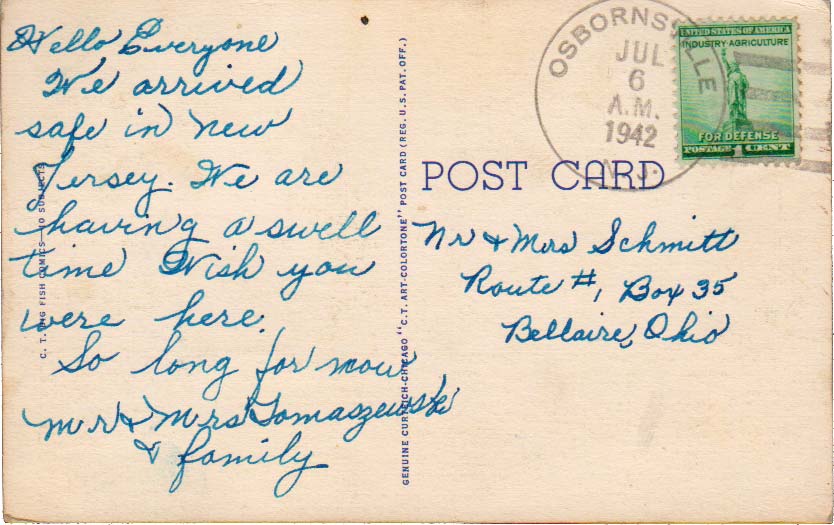 Hello Everyone
We arrived
safe in New
Jersey. We are
having a swell
time Wish you
were here.
So long for now
Mr & Mrs Tomaszewski
& family
C. T. BIG FISH COMICS—10 SUBJECTS
GENUINE CURTEICH-CHICAGO "C. T. ART-COLORTONE" POST CARD (REG. U. S. PAT. OFF.)
POST CARD
OSBORNSVILLE
JUL
6
A.M.
1942
N. J.
UNITED STATES OF AMERICA
INDUSTRY·AGRICULTURE
FOR DEFENSE
POSTAGE 1 CENT
Mr & Mrs Schmitt
Route #1 Box 35
Bellaire, Ohio